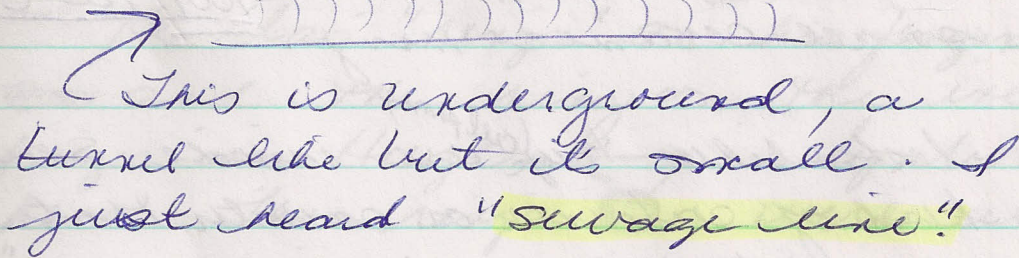 This is underground, a
tunnel like but it's small. I
just heard "sewage line".